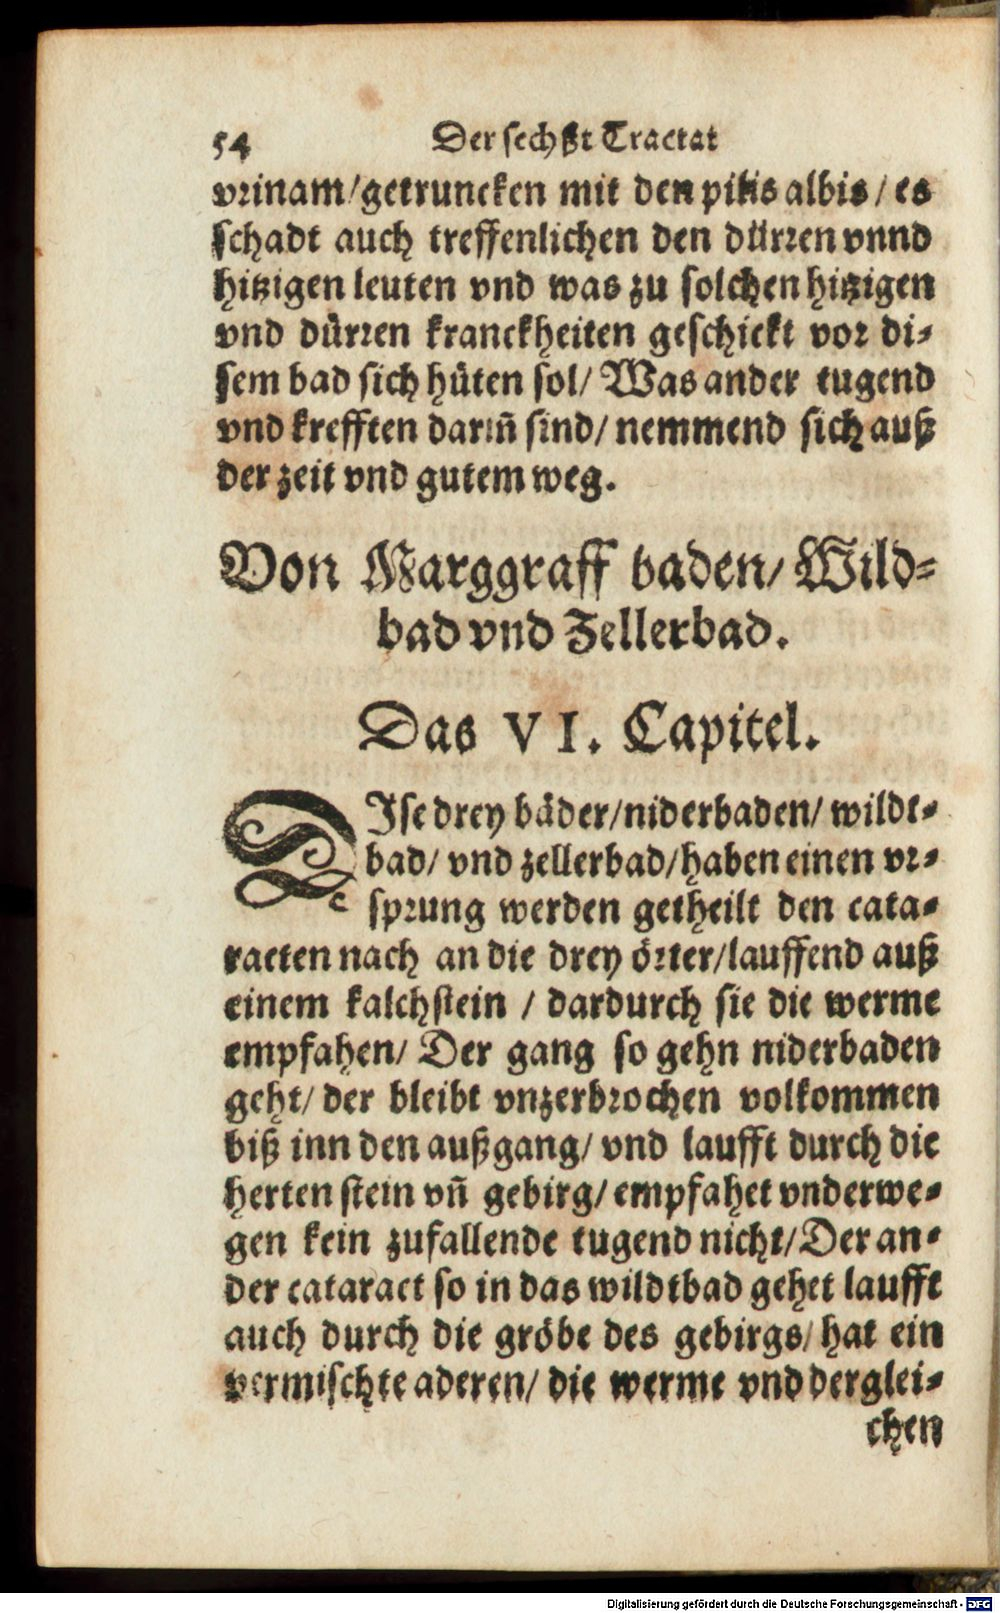 54 Der sechßt Tractat
vrinam/getruncken mit den pilis albis/ es
schadt auch treffenlichen den dürren vnnd
hitzigen leuten vnd was zu solchen hitzigen
vnd dürren kranckheiten geschickt vor di-
sem bad sich hüten sol/ Was ander tugend
vnd krefften dariñ sind/ nemmend sich auß
der zeit vnd gutem weg.
Von Marggraff baden/ Wild-
bad vnd Zellerbad.
Das VI. Capitel.
DIse drey bäder/niderbaden/ wildt-
bad/ vnd zellerbad/haben einen vr-
sprung werden getheilt den cata-
racten nach an die drey örter/lauffend auß
einem kalchstein / dardurch sie die werme
empfahen/ Der gang so gehn niderbaden
geht/ der bleibt vnzerbrochen volkommen
biß inn den außgang/ vnd laufft durch die
herten stein vñ gebirg/ empfahet vnderwe-
gen kein zufallende tugend nicht/Der an-
der cataract so in das wildtbad gehet laufft
auch durch die gröbe des gebirgs/ hat ein
vermischte aderen/ die werme vnd derglei-
chen
Digitalisierung gefördert durch die Deutsche Forschungsgemeinschaft - DFG